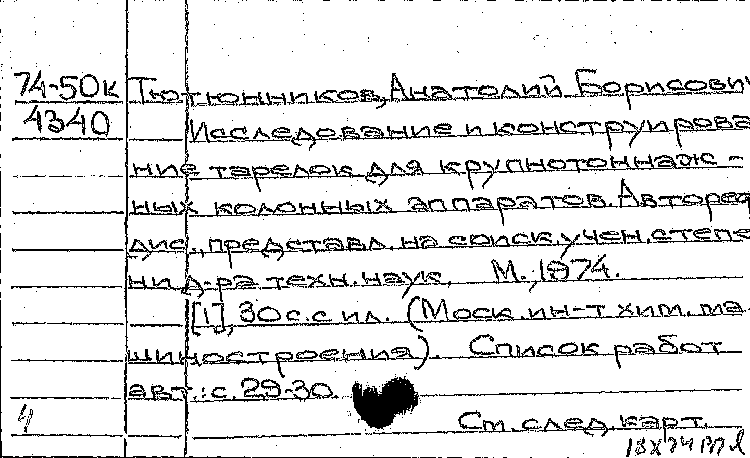 74-50к Тютюнников, Анатолий Борисович
4340 Исследование и конструирова-
ние тарелок для крупнотоннаж-
ных колонных аппаратов. Автореф.
дис., представл. на соиск. учен. степе-
ни д-ра техн. наук. М., 1974.
[1], 30 с. с ил. (Моск. ин-т хим. ма-
шиностроения). Список работ
авт.: с. 29-30.
См. след. карт.